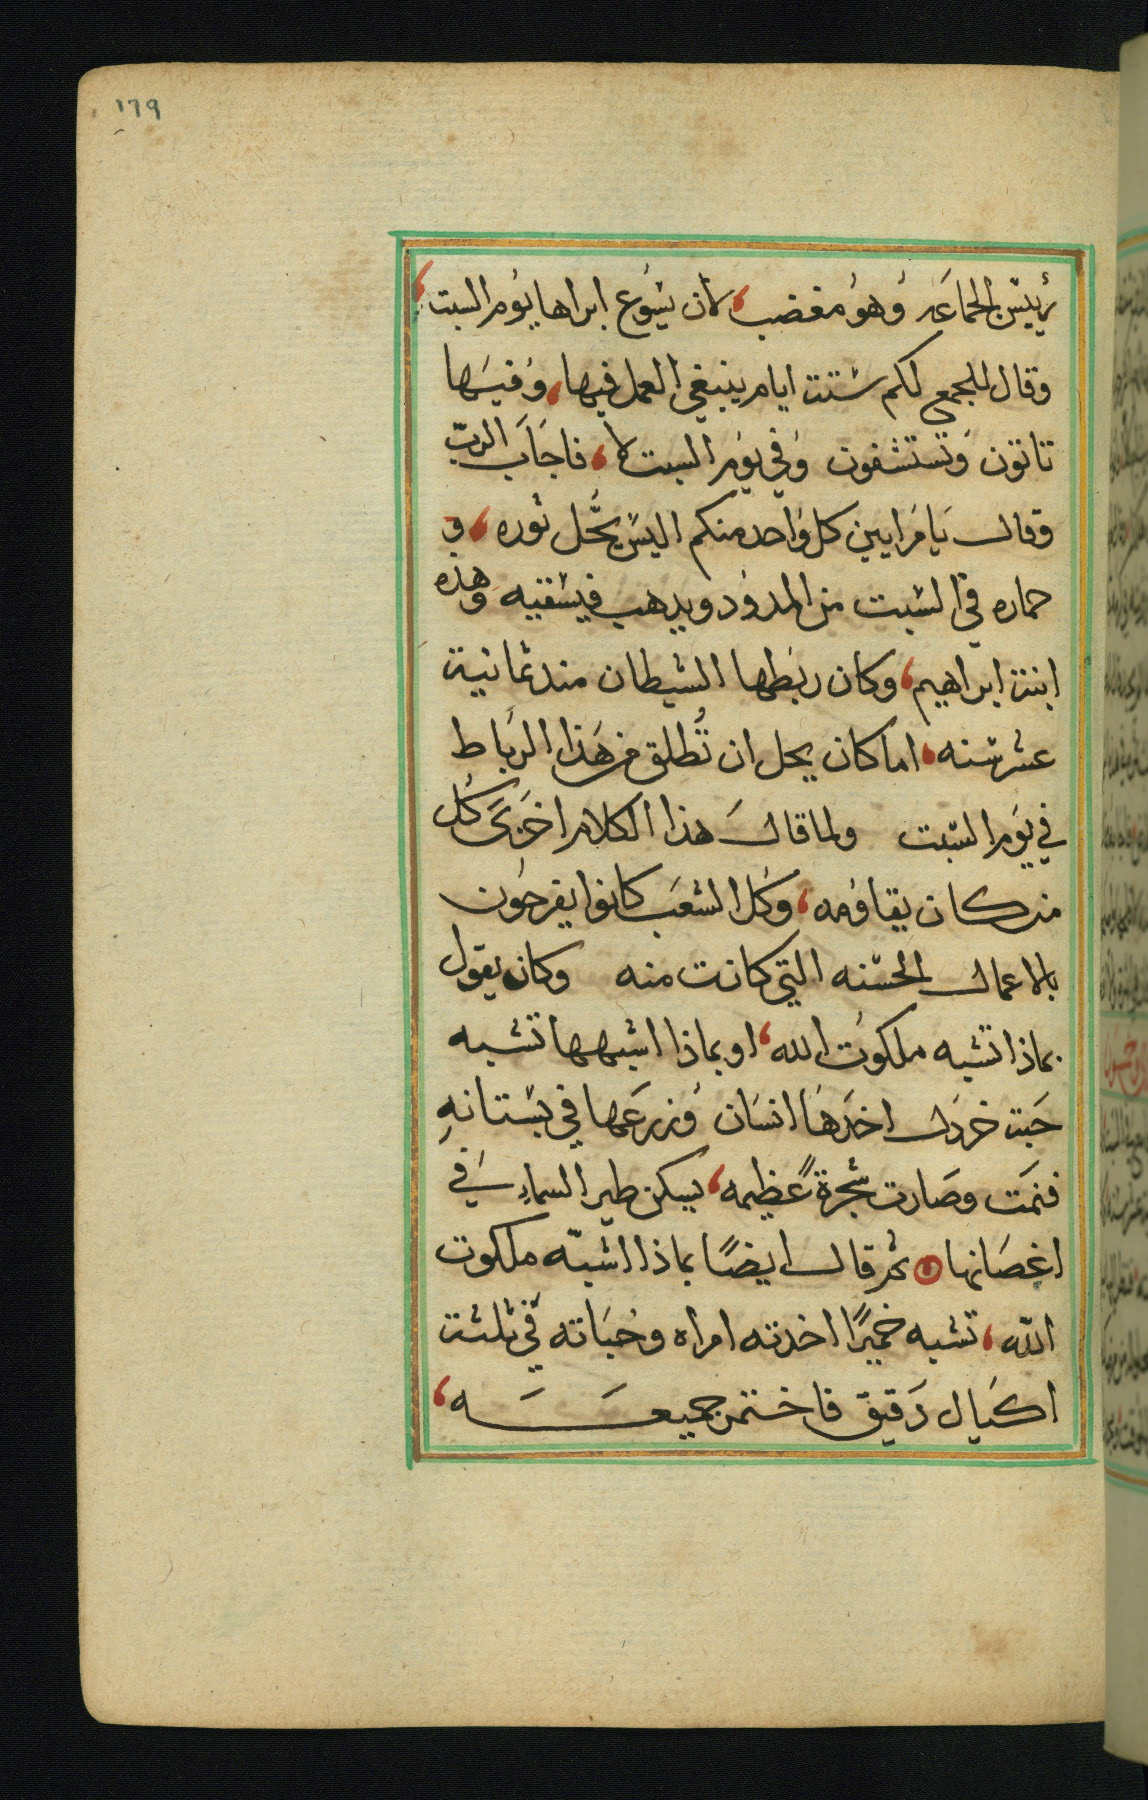 ١٦٩
رئيس الجماعه وهو مغضب لان يسوع ابراها يوم السبت
وقال للجمع لكم ستت ايام ينبغي العمل فيها، وفيها
تاتون وتستشفون وفي يوم السبت لا، فاجاب الرب
وقال يا مرايين كل واحد منكم اليس يحُل ثوره، و
حماره في السبت من المدود ويدهب فيسقيه وهذه
ابنت ابراهيم، وكان ربطها الشيطان مند ثمانية
عشر سنه، اما كان يحل ان تُطلق من هذا الرباط
في يوم السبت ولما قال هذا الكلام اخزى كل
من كان يقاومه، وكل الشعب كانوا يفرحون
بالاعمال الحسنه التي كانت منه وكان يقول
بماذا تشبه ملكوت الله، او بماذا اشبهها تشبه
حبت خردل اخدها انسان وزرعها في بستانهِ
فنمت وصارت شجرةً عظيمه، يسكن طير السماء في
اغصانها ثم قال ايضًا بماذا اشبّه ملكوت
الله، تشبه خميرًا اخدته امراه وخباته في ثلثت
اكيال دقيق فاختمر جميعه،